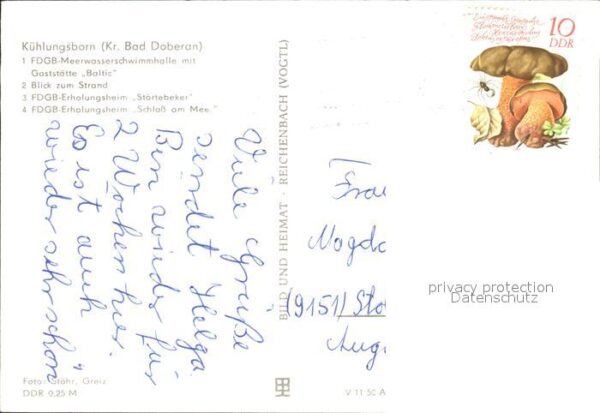 Kühlungsborn (Kr. Bad Doberan)
1 FDGB-Meerwasserschwimmhalle mit
Gaststätte „Baltic"
2 Blick zum Strand
3 FDGB-Erholungsheim „Störtebeker"
4 FDGB-Erholungsheim „Schloß am Mee
Viele Grüße
sendet Helga.
Bin wieder für
2 Wochen hier.
Es ist auch
wieder sehr schön
BILD UND HEIMAT · REICHENBACH (VOGTL)
10
DDR
Frau
Magda
(9151) Sto
Aug
privacy protection
Datenschutz
Foto: Stöhr, Greiz
DDR 0,25 M
V 11 50 A